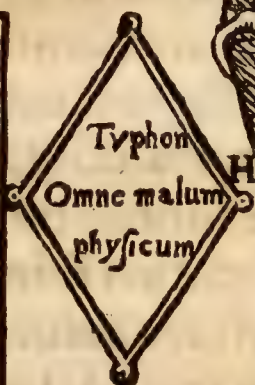 Typhon
H
Omne malum
phyſicum